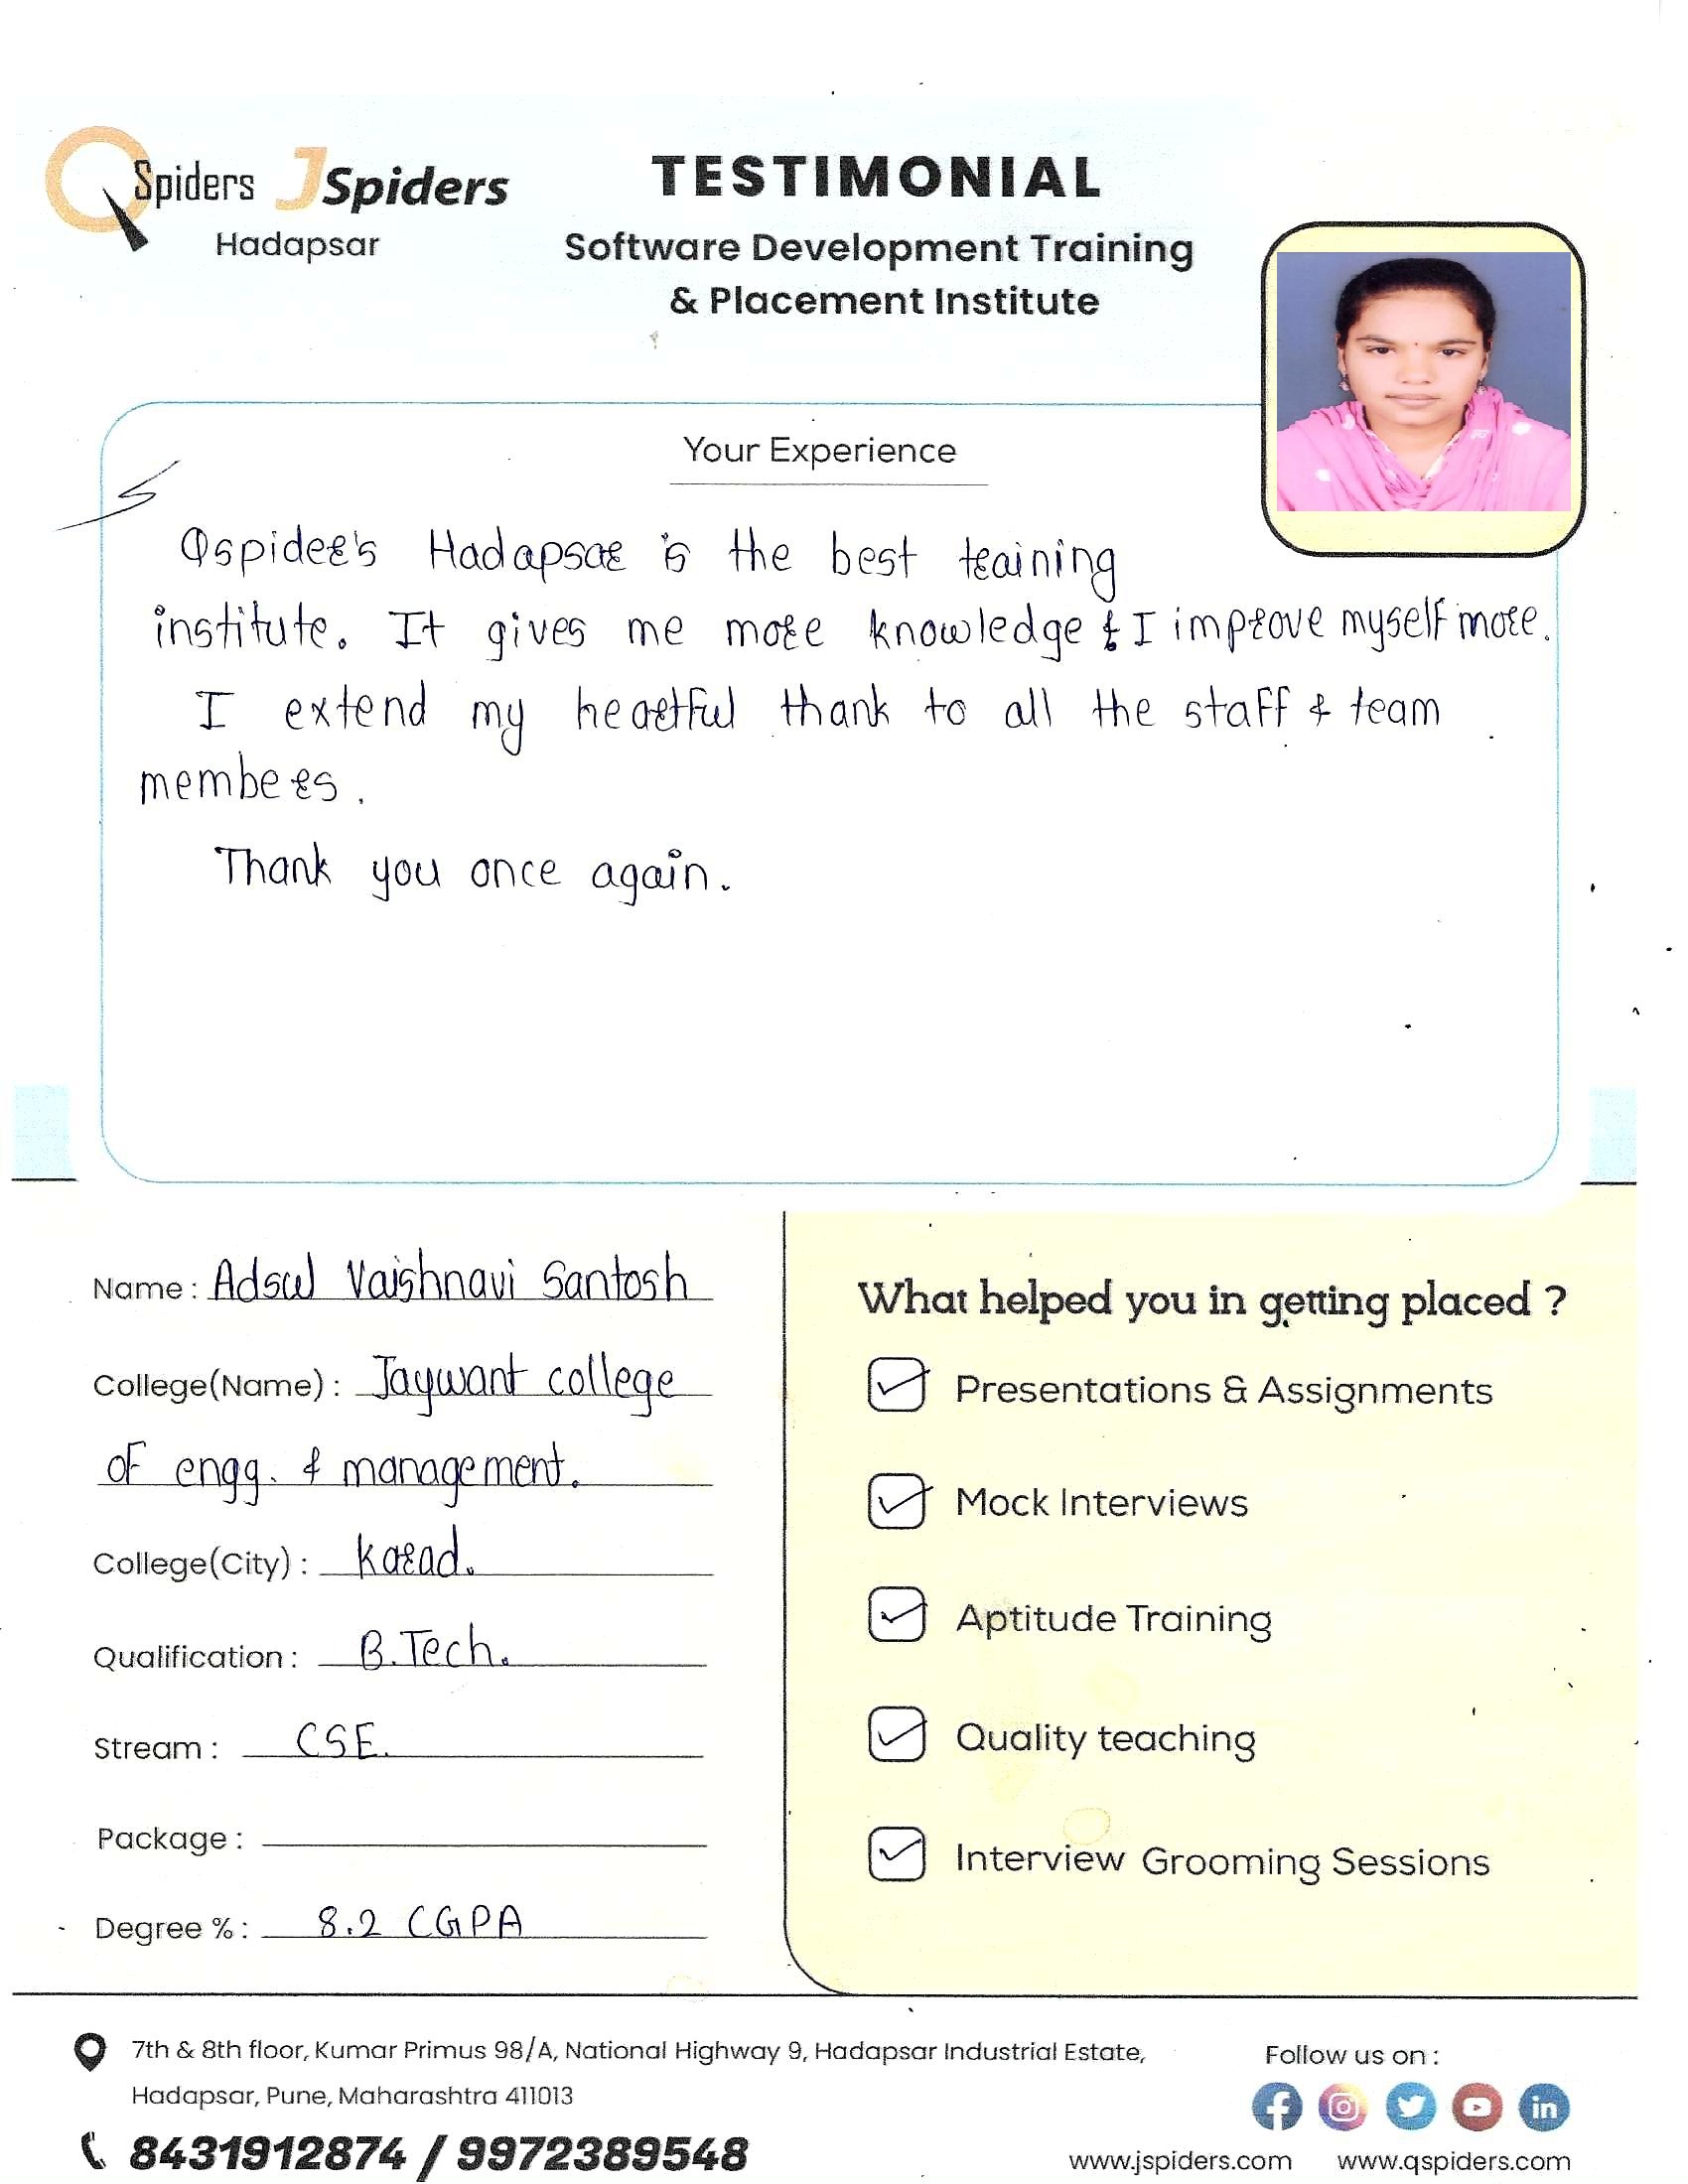 QSpiders JSpiders
Hadapsar
TESTIMONIAL
Software Development Training
& Placement Institute
Your Experience
Qspider's Hadapsar is the best training
institute. It gives me more knowledge & I improve myself more.
I extend my heartful thank to all the staff & team
members.
Thank you once again.
Name : Adsul Vaishnavi Santosh
College(Name) : Jaywant college
of engg. & management.
College(City) : Karad.
Qualification : B.Tech.
Stream : CSE.
Package :
Degree % : 8.2 CGPA
What helped you in getting placed ?
Presentations & Assignments
Mock Interviews
Aptitude Training
Quality teaching
Interview Grooming Sessions
7th & 8th floor, Kumar Primus 98/A, National Highway 9, Hadapsar Industrial Estate,
Hadapsar, Pune, Maharashtra 411013
8431912874 / 9972389548
Follow us on :
www.jspiders.com www.qspiders.com